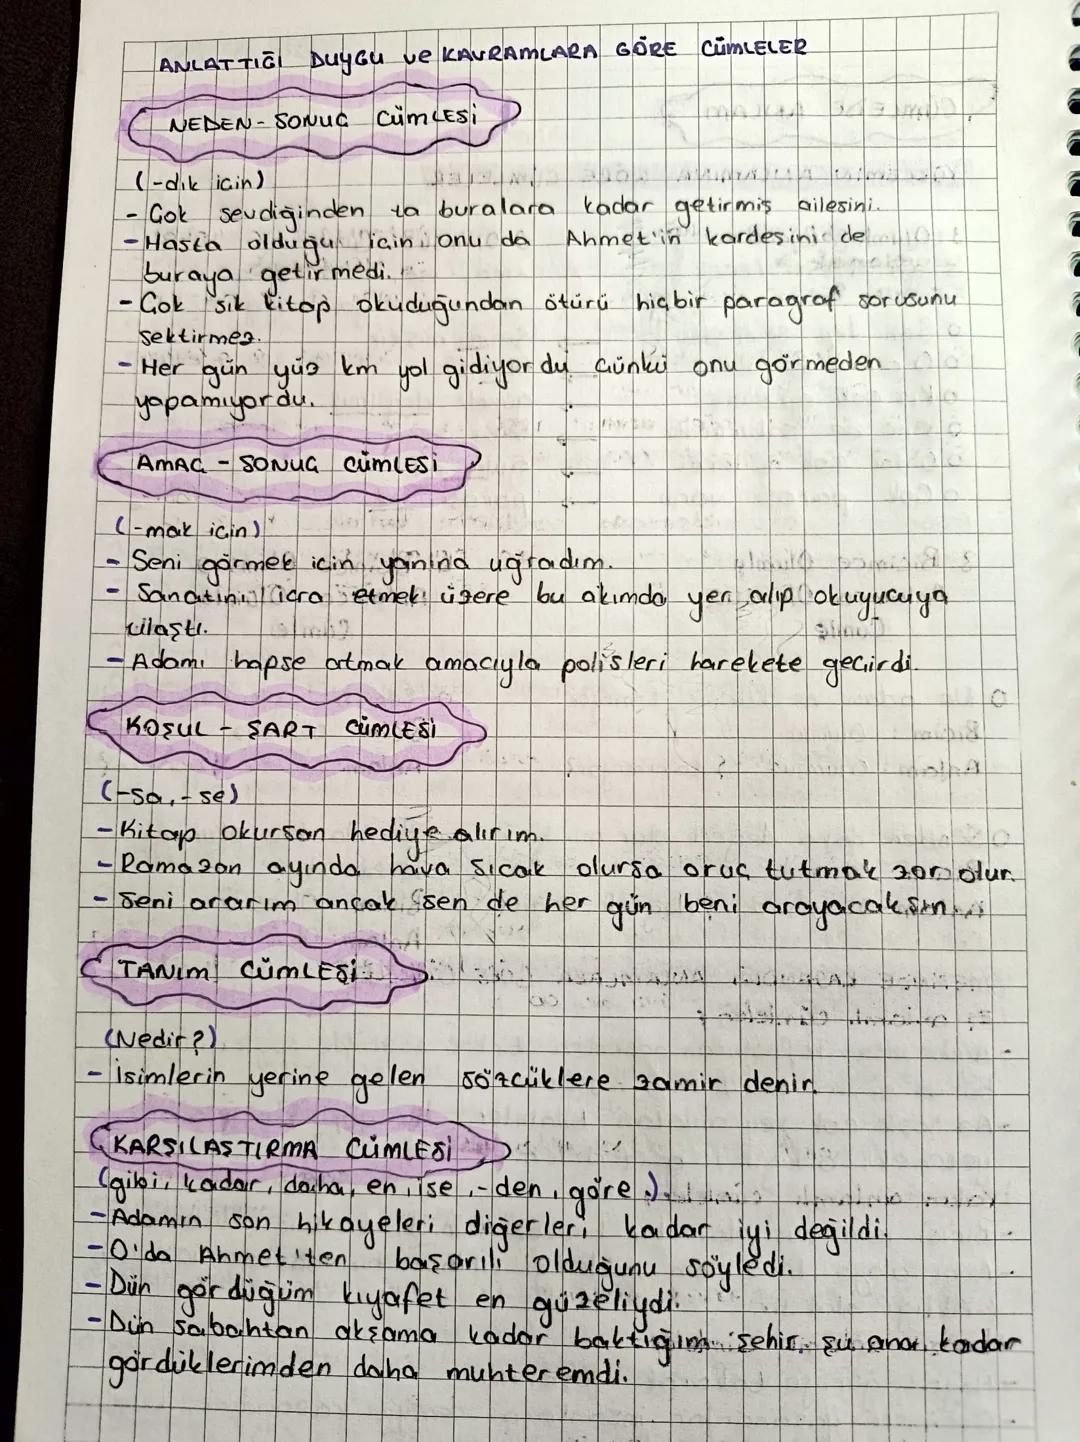 ANLATTIĞI DUYGU ve KAVRAMLARA GÖRE CÜMLELER
NEDEN - SONUÇ CÜMLESİ
(-dık için)
- Çok sevdiğinden ta buralara kadar getirmiş ailesini.
- Hasta olduğu için onu da Ahmet'in kardeşini de
buraya getirmedi.
- Çok sık kitap okuduğundan ötürü hiçbir paragraf sorusunu
sektirmez.
- Her gün yüz km yol gidiyordu çünkü onu görmeden
yapamıyordu.
AMAÇ - SONUÇ CÜMLESİ
(-mak için)
- Seni görmek için yanına uğradım.
- Sanatını icra etmek üzere bu akımda yer alıp okuyucuya
ulaştı.
- Adamı hapse atmak amacıyla polisleri harekete geçirdi.
KOŞUL - ŞART CÜMLESİ
(-sa, -se)
- Kitap okursan hediye alırım.
- Ramazan ayında hava sıcak olursa oruç tutmak zor olur.
- Seni ararım ancak sen de her gün beni arayacaksın.
TANIM CÜMLESİ
(Nedir?)
- İsimlerin yerine gelen sözcüklere zamir denir.
KARŞILAŞTIRMA CÜMLESİ
(gibi, kadar, daha, en, ise, -den, göre)
- Adamın son hikayeleri diğerleri kadar iyi değildi.
- O'da Ahmet'ten başarılı olduğunu söyledi.
- Dün gördüğüm kıyafet en güzeliydi.
- Dün sabahtan akşama kadar baktığım şehir, şu ana kadar
gördüklerimden daha muhteremdi.